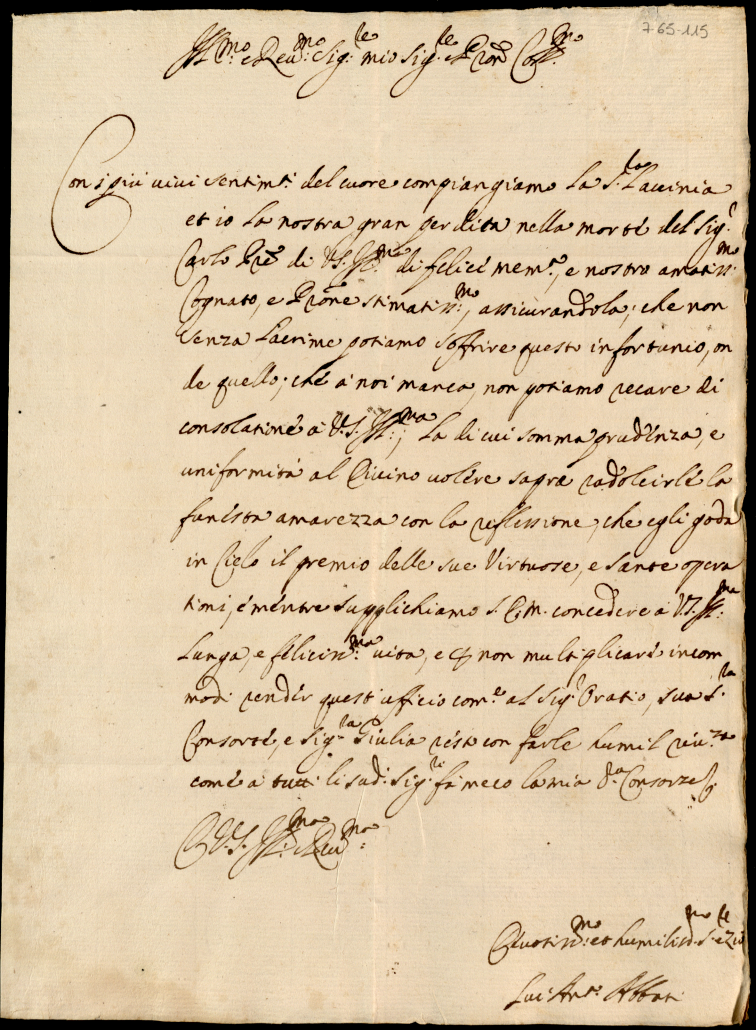 765-115
Ill.mo e Reu.mo Sig.re mio Sig.re e P.rone Col.mo
Con i piu uiui sentim.ti del cuore compiangiamo la S.ra Lauinia
et io la nostra gran perdita nella morte del Sig.r
Carlo P.re di V.S. Ill.ma di felice mem.a, e nostro amatiss.mo
Cognato, e P.rone stimatiss.mo, assicurandola, che non
senza lacrime potiamo soffrire questo infortunio, on
de quello, che a noi manca, non potiamo recare di
consolatione à V.S. Ill.ma, la di cui somma prudenza, e
uniformità al Diuino uolere saprà radolcirle la
funesta amarezza con la reflessione, che egli goda
in Cielo il premio delle sue Virtuose, e sante opera
tioni, e mentre supplichiamo S.D.M. concedere à V.S. Ill.ma
lunga, e feliciss.ma uita, e p non multiplicare incom
modi render quest'ufficio com.e al Sig.r Oratio, sua S.ra
Consorte, e Sig.ra Giulia resto con farle humil riu.za
come à tutti li sud.i Sig.ri fà meco la mia S.ra Consorte
D V.S. Ill.ma e Reu.ma
Deuotiss.mo et humiliss.mo S.re
Lui Ant.o Abbati